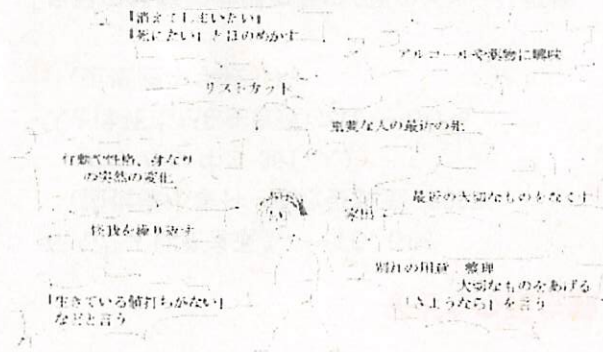 「消えてしまいたい」
「死にたい」とほのめかす
アルコールや薬物に興味
リストカット
重要な人の最近の死
行動や性格、身なり
の突然の変化
最近の大切なものをなくす
家出
怪我を繰り返す
別れの用意 整理
大切なものをあげる
「さようなら」を言う
「生きている値打ちがない」
などと言う